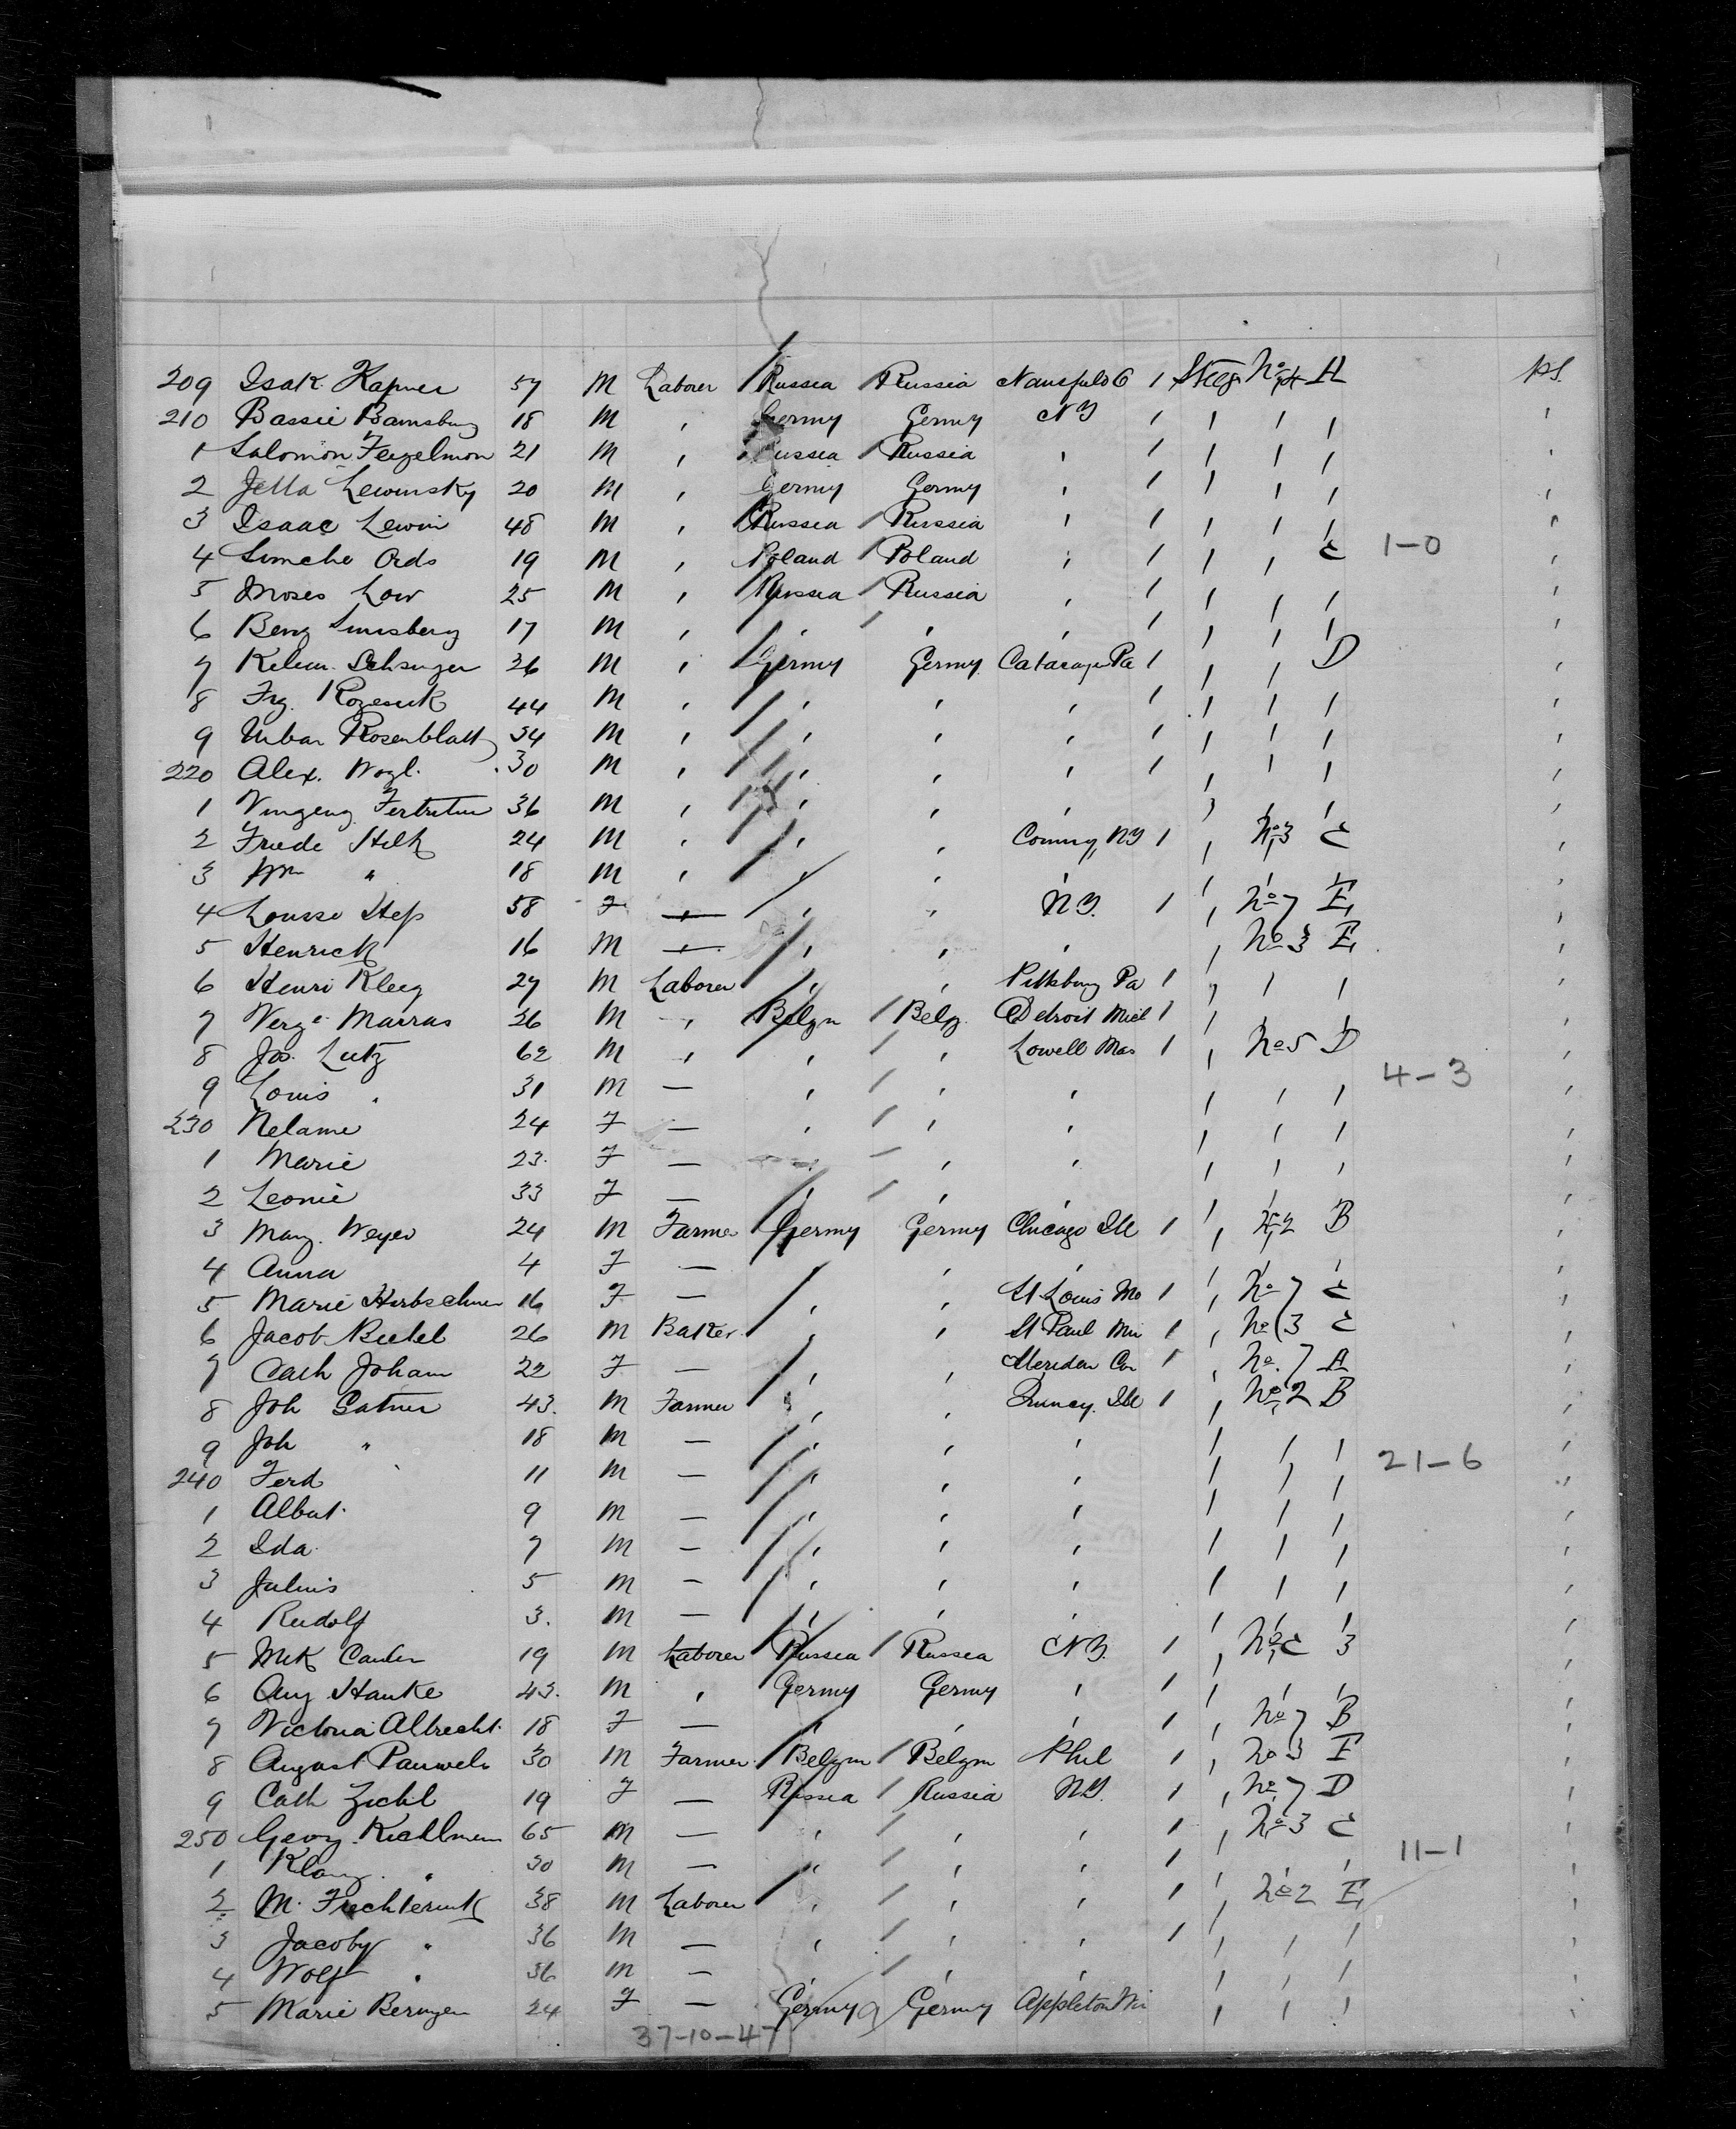 209 Isak Kapner 57 M Laborer Russia Russia 1 Steeg No 4 A
210 Bassie 18 M , Germy Germy NY 1 1 1 1
1 Salomon Fegelmon 21 M , Russia Russia , 1 1 1 1
2 Jetta Lewinsky 20 M , Germy Germy , 1 1 1 1
3 Isaac Lewin 48 M , Russia Russia , 1 1 1 1
1-0
4 Simche Ords 19 M , Poland Poland , 1 1 , C
5 Moses Low 25 M , Russia Russia , 1 1 1 1
6 Benz 17 M , , , , 1 1 1 1
7 26 M , Germy Germy Pa 1 1 , D
8 44 M , , , , 1 1 1 1
9 Urban Rosenblatt 34 M , , , , 1 1 1 1
220 Alex. Wozl. 30 M , , , , 1 , 1 1
1 36 M , , , , , , ,
2 Friede Hilk 24 M , , , Corning, NY 1 , No 3 C
3 Wm " 18 M , , , , , ,
4 Lousse Hess 58 F — , , NY. 1 , No 7 E
5 Henrick 16 M — , , , , No 3 E
6 Henri Kleeg 27 M Laborer , , Pittsburg Pa 1 , 1 1
7 Marras 26 M , Belgn Belg. Detroit Mich 1 , , ,
8 Jos. Lutz 62 M , , , Lowell Mas 1 , No 5 D
4-3
9 Louis , 31 M — , , , 1 1 1
230 Nelame 24 F — , , , 1 1 1
1 Marie 23 F — , , , 1 1 1
2 Leonie 33 F — , , , , , ,
3 Weyer 24 M Farmer Germy Germy Chicago Ill 1 , No 2 B
4 Anna 4 F — , , , , , ,
5 Marie 16 F — , , St Louis Mo 1 , No 7 C
6 Jacob 26 M Baker , , St Paul Min 1 , No 3 C
7 Cath Johann 22 F — , , Meriden Con 1 , No. 7 A
8 Joh Gatner 43. M Farmer , , Quincy. Ill 1 , No 2 B
9 Joh " 18 M — , , , 1 1 1
21-6
240 Ferd 11 M — , , , 1 1 1
1 Albert 9 M — , , , 1 1 1
2 Ida 7 M — , , , 1 1 1
3 Julius 5 M — , , , 1 1 1
4 Rudolf 3. M — , , , , , ,
5 19 M Laborer Russia Russia NY. 1 , No C 3
6 Aug Hanke 43. M , Germy Germy , 1 , , ,
7 Victoria Albrecht 18 F — , , , 1 , No 7 B
8 August Pauwels 30 M Farmer Belgm Belgm Phil 1 , No 3 E
9 Cath Zichl 19 F — Russia Russia NY. 1 , No 7 D
250 Georg. 65 M — , , , 1 , No 3 C
11-1
1 30 M — , , , 1 , , ,
2 M. 38 M Laborer , , , 1 , No 2 E
3 Jacoby " 36 M — , , , 1 1 1 1
4 Wolf " 36 M — , , , 1 1 1
5 Marie 24 F — Germy Germy Appleton Wis 1 1 1
37-10-47